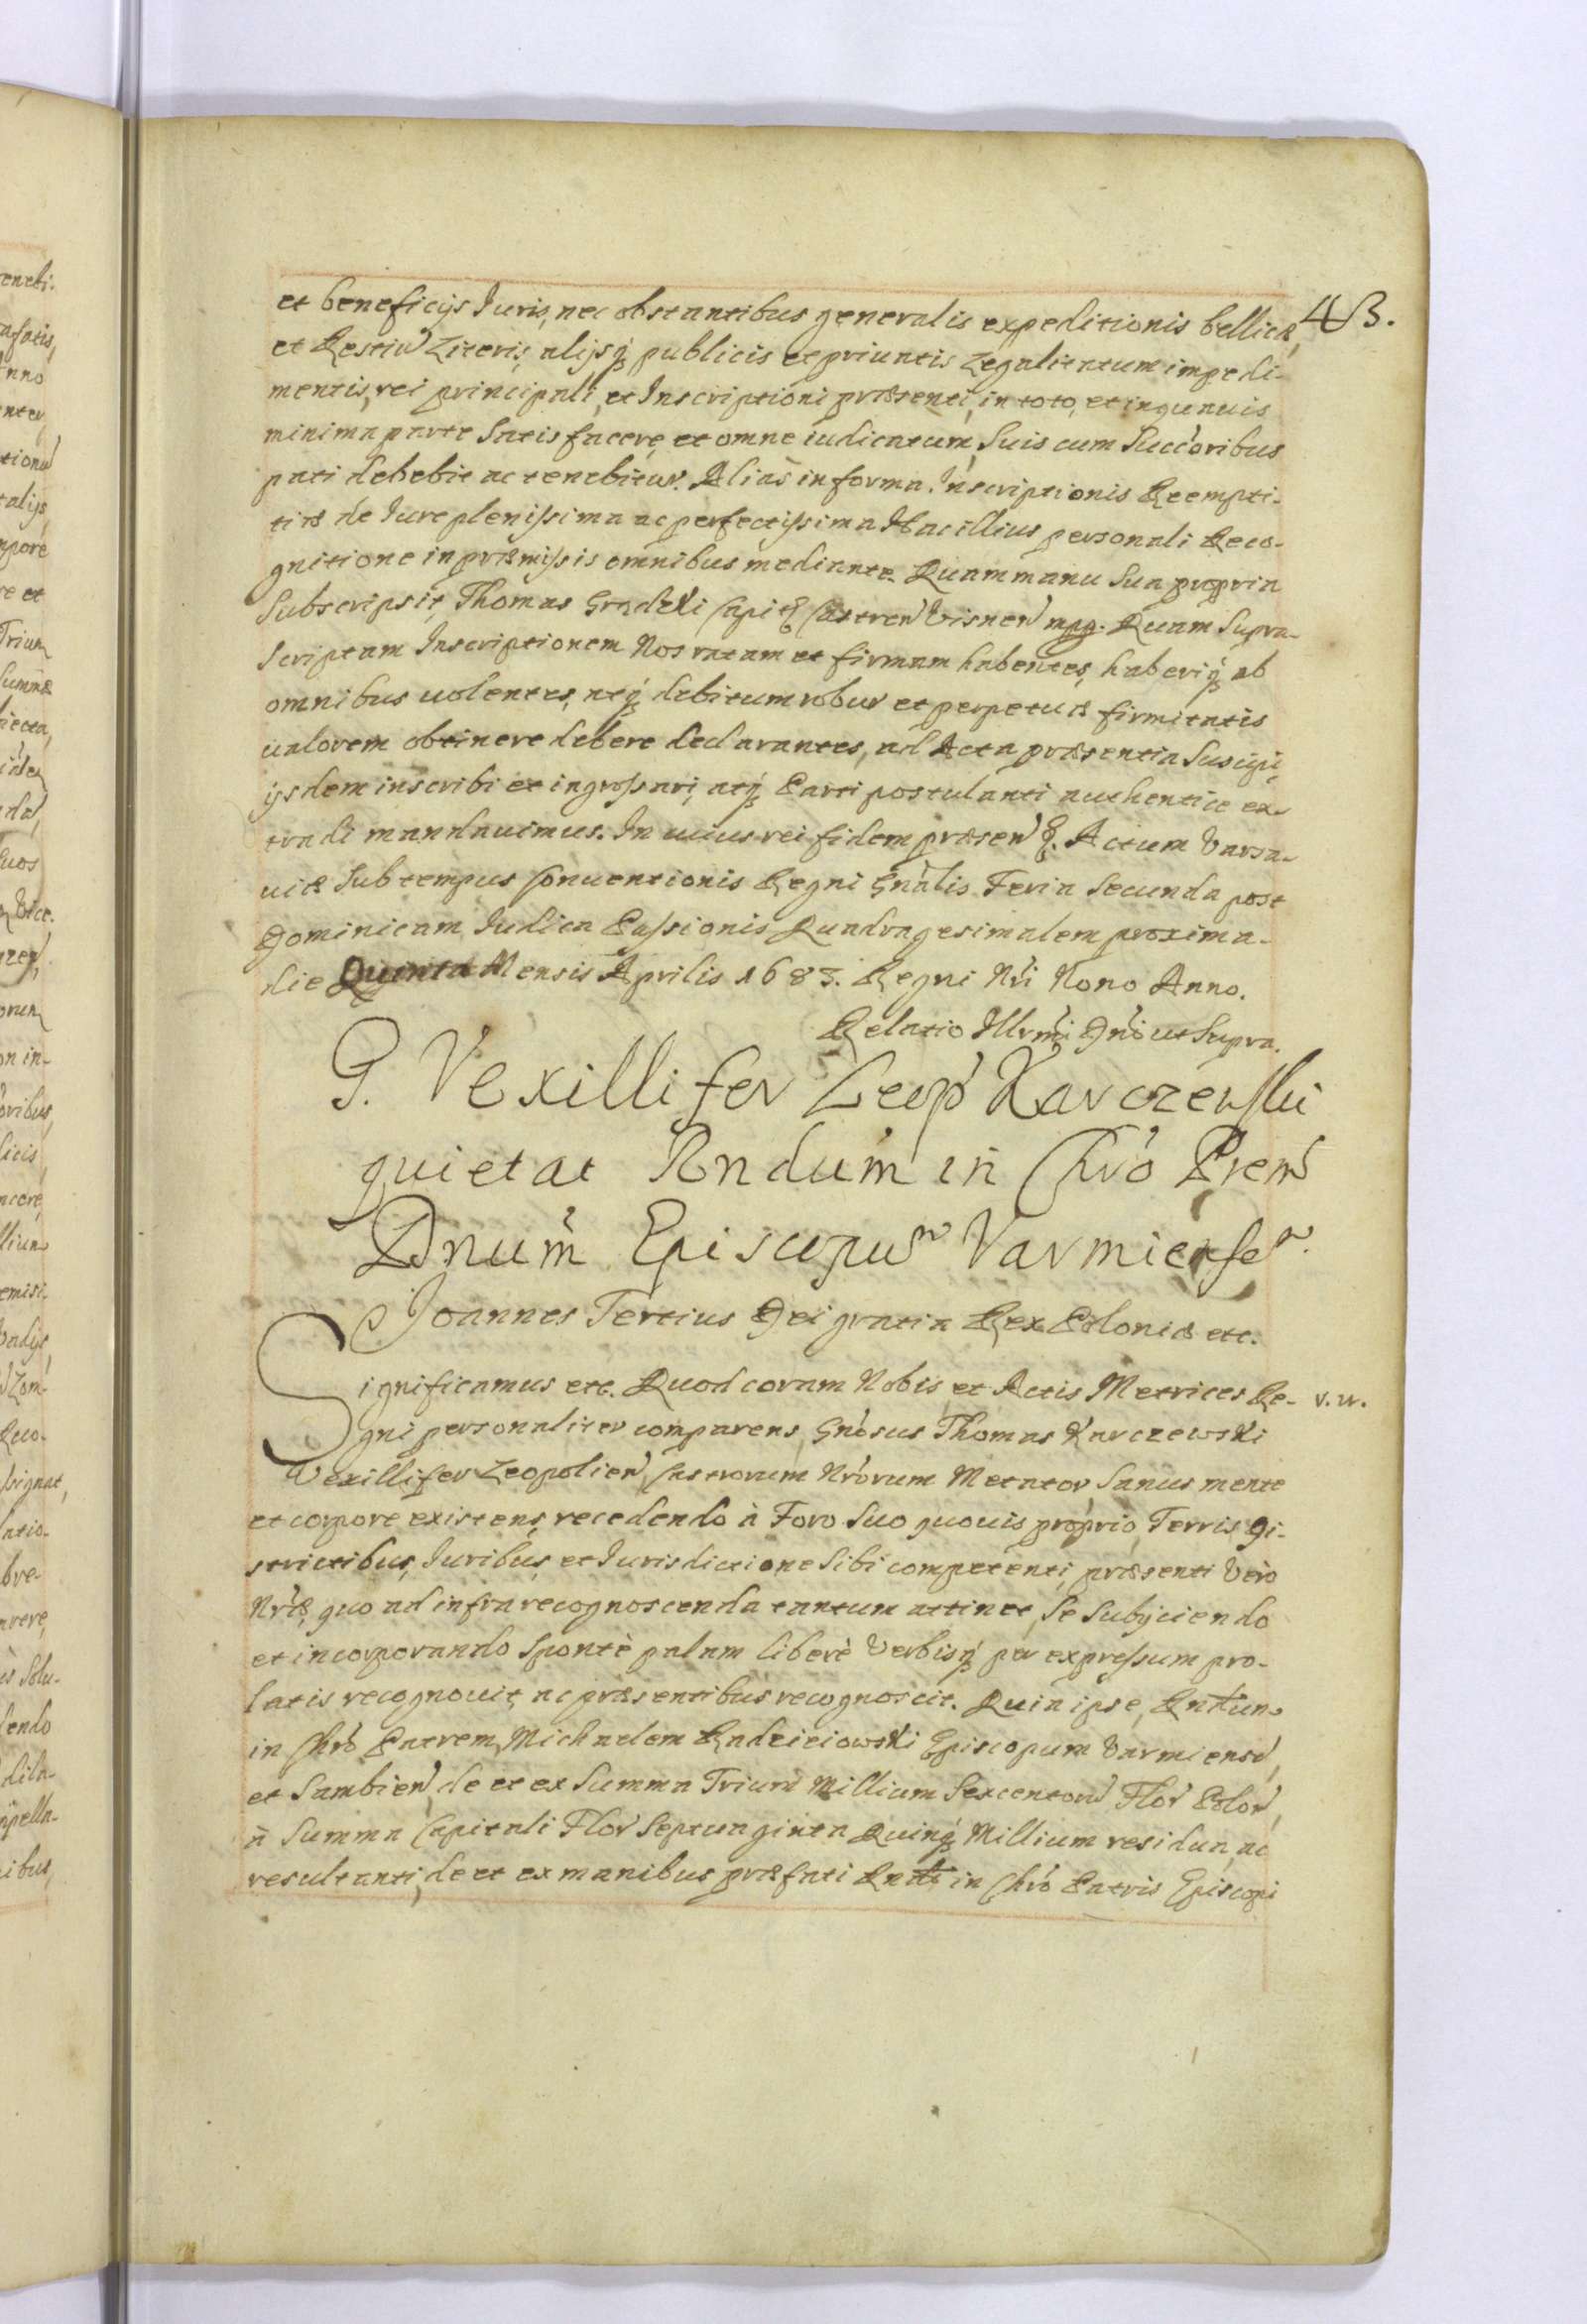 43.
et beneficijs Iuris, nec obstantibus generalis expeditionis bellicæ,
et Restiu Literis, alijsq̃ publicis et priuatis Legalitatum impedi-
mentis, rei principali, et Inscriptioni præsenti, in toto, et in quauis
minima parte Satisfacere, et omne iudicatum, Suis cum Succoribus
pati debebit ac tenebitur. Alias in forma Inscriptionis Reempti-
tiæ de Iure plenissima ac perfectissima Hac illius personali Reco-
gnitione in præmissis omnibus mediante. Quam manu Sua propria
Subscripsit, Thomas Gradzki Capit Castren Visnen mpp. Quam Supra-
Scriptam Inscriptionem Nos ratam et firmam habentes, haberiq̃ ab
omnibus uolentes, atq̃ debitum robur et perpetuæ firmitatis
ualorem obtinere debere declarantes, ad Acta præsentia Suscipi,
ijsdem inscribi et ingrossari, atq̃ Parti postulanti authentice ex-
tradi mandauimus. In cuius rei fidem præsen. Actum Varsa-
uiæ Sub tempus Conuentionis Regni Gnalis Feria Secunda post
Dominicam Iudica Passionis Quadragesimalem proxima.
die Quinta Mensis Aprilis 1683. Regni Nri Nono Anno.
Relatio Illrmi Dni ut Supra.
G. Vexillifer Leop Karczewski
quietat Rndum in Chro Prem
Dnum Episcopum Varmiensem.
Joannes Tertius Dei gratia Rex Poloniæ etc.
Significamus etc. Quod coram Nobis et Actis Metrices Re- v. w.
gni personaliter comparens Gnosus Thomas Karczewski
Vexillifer Leopolien, Castrorum Nrorum Metator, Sanus mente
et corpore existens, recedendo à Foro Suo quouis proprio, Terris Di-
strictibus, Iuribus, et Iurisdictione Sibi competenti, præsenti Vero
Nræ, quo ad infra recognoscenda tantum attinet, Se Subijciendo
et incorporando Spontè palam liberè Verbisq̃ per expressum pro-
latis recognouit, ac præsentibus recognoscit. Quia ipse, Rndum
in Chro Patrem, Michaelem Radzieiowski Episcopum Varmiensem,
et Sambien, de et ex Summa Trium Millium Sexcentoru Flor Polon,
à Summa Capitali Flor Septuaginta Quinq̃ Millium residua, ac
resultanti, de et ex manibus præfati Rndi in Chro Patris Episcopi